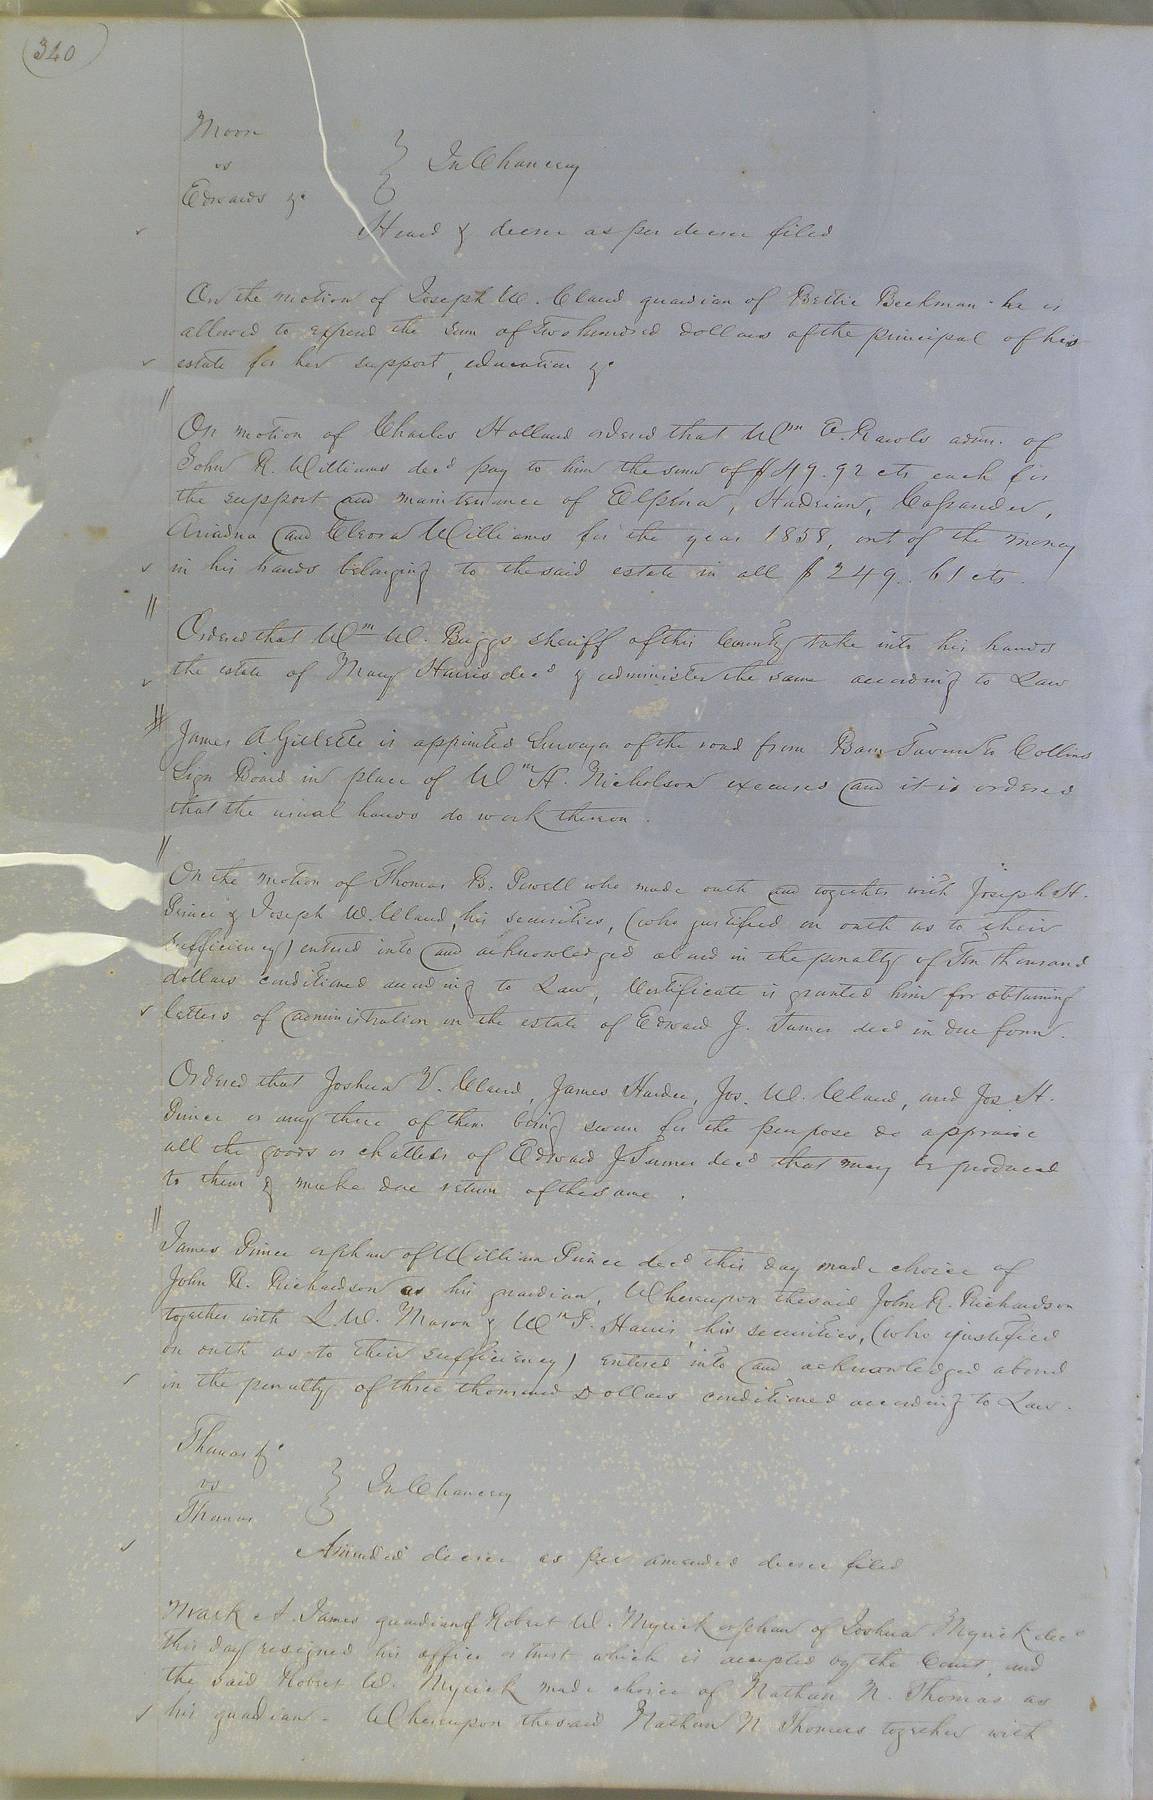 340
Moore
vs
Edwards &c
In Chancery
Heard & decree as per decree filed
On the motion of Joseph W. Claud guardian of Bettie Beekman he is
allowed to expend the sum of Two hundred dollars of the principal of his
estate for her support, education &c
On motion of Charles Holland ordered that Wm E. Rawls admr. of
John R. Williams decd pay to him the sum of $49.92 cts each for
the support and maintenance of Elpena, Hadrian, Cassander,
Ariadna and Cleora Williams for the year 1858, out of the money
in his hands belonging to the said estate in all $249.61 cts.
Ordered that Wm W. Briggs sheriff of this County take into his hands
the estate of Mary Harris decd & administer the same according to Law
James A Gillette is appointed Surveyor of the road from Bass Tavern to Collins
Sign Board in place of Wm H. Nicholson excused and it is ordered
that the usual hands do work thereon.
On the motion of Thomas B. Powell who made oath and together with Joseph H.
Prince & Joseph W. Claud, his securities, (who justified on oath as to their
sufficiency) entered into and acknowledged a bond in the penalty of Ten thousand
dollars conditioned according to Law, Certificate is granted him for obtaining
letters of administration on the estate of Edward J. Turner decd in due form.
Ordered that Joshua V. Claud, James Harder, Jos. W. Claud, and Jos H.
Prince or any three of them being sworn for the purpose do appraise
all the goods or chattels of Edward J Turner decd that may be produced
to them & make due return of the same.
James Prince orphan of William Prince decd this day made choice of
John R. Richardson as his guardian, Whereupon the said John R. Richardson
together with L. W. Mason & Wm P. Harris, his securities, (who justified
on oath as to their sufficiency) entered into and acknowledged a bond
in the penalty of three thousand Dollars conditioned according to Law.
Thomas &c
vs
Thomas
In Chancery
Amended decree as per amended decree filed
Mark A. James guardian of Robert W. Myrick orphan of Joshua Myrick decd
this day resigned his office or trust which is accepted by the Court, and
the said Robert W. Myrick made choice of Nathan N. Thomas as
his guardian - Whereupon the said Nathan N Thomas together with